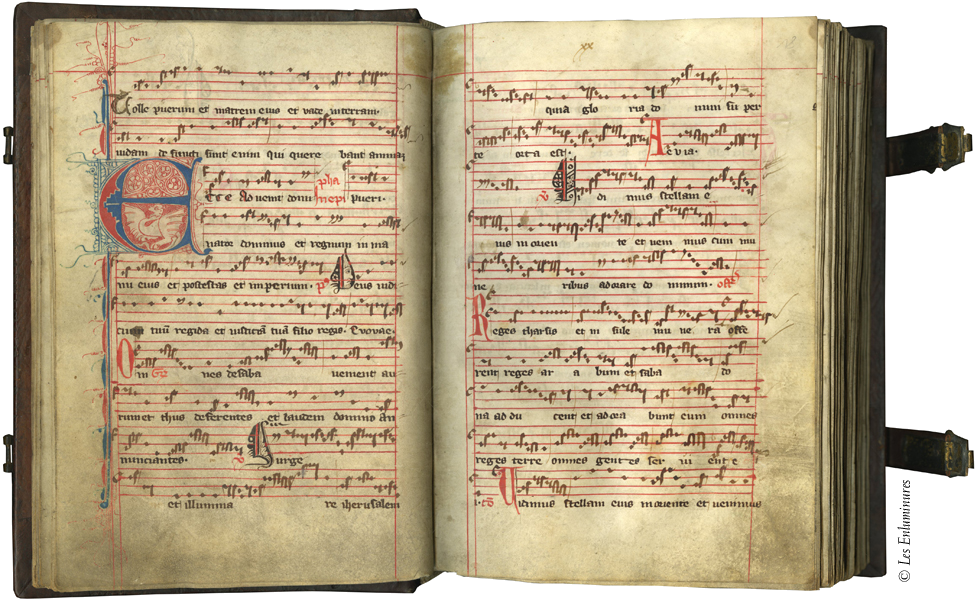 Tolle puerum et matrem eius et vade in terram
iudam defuncti sunt enim qui quere bant animam
Ecce Advenit domi pueri
pha
nepi
nator dominus et regnum in ma
nu eius et potestas et imperium. ps Deus iudi
cium tuum regida et iusticiam tuam filio regis. Evovae.
Om Gr nes de saba venient au
rum et thus deferentes et laudem domino an
nunciantes. V Surge
et illumina re iherusalem
xx
quia glo ria do mini sup er
te orta est. A evia.
V Vi di mus stellam e
ius in orien te et veni mus cum mu
ne ribus adorare do minum. offer
Reges tharsis et in sule mu ne ra offe
rent reges ar a bum et saba do
na ad du cent et adora bunt eum omnes
reges terre omnes gentes ser vi ent e
i. co Vidimus stellam eius in oriente et venimus
© Les Enluminures